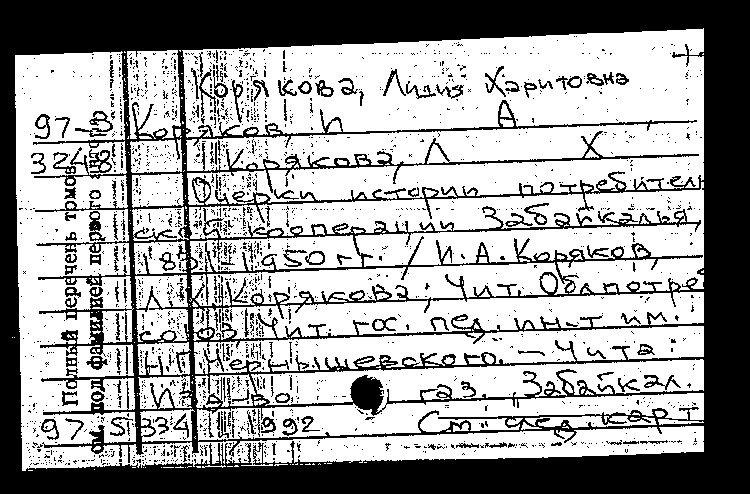 Корякова, Лидия Харитовна
97-3 Коряков, И А
324 Корякова, Л Х
Очерки истории потребитель
ской кооперации Забайкалья,
1831-1950 гг. / И.А.Коряков,
Л.Х Корякова; Чит. Облпотреб
союз, Чит. гос. пед. ин-т им.
Н.Г.Чернышевского. – Чита:
Изд-во газ. „Забайкал.
97-5334 1992. См. след. карт
Полный перечень томов
см. под фамилией первого автора